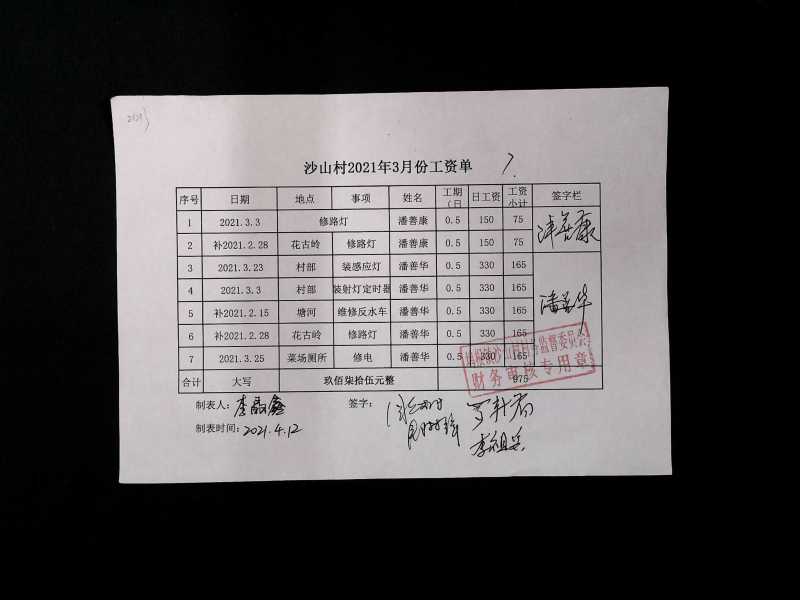 沙山村2021年3月份工资单 7.
序号 日期 地点 事项 姓名 工期（日 日工资 工资小计 签字栏
1 2021.3.3 修路灯 潘善康 0.5 150 75
2 补2021.2.28 花古岭 修路灯 潘善康 0.5 150 75
潘善康
3 2021.3.23 村部 装感应灯 潘善华 0.5 330 165
4 2021.3.3 村部 装射灯定时器 潘善华 0.5 330 165
5 补2021.2.15 塘河 维修反水车 潘善华 0.5 330 165
潘善华
6 补2021.2.28 花古岭 修路灯 潘善华 0.5 330 165
7 2021.3.25 菜场厕所 修电 潘善华 0.5 330 165
合计 大写 玖佰柒拾伍元整 975
财务审核专用章
制表人： 签字：
制表时间：2021.4.12